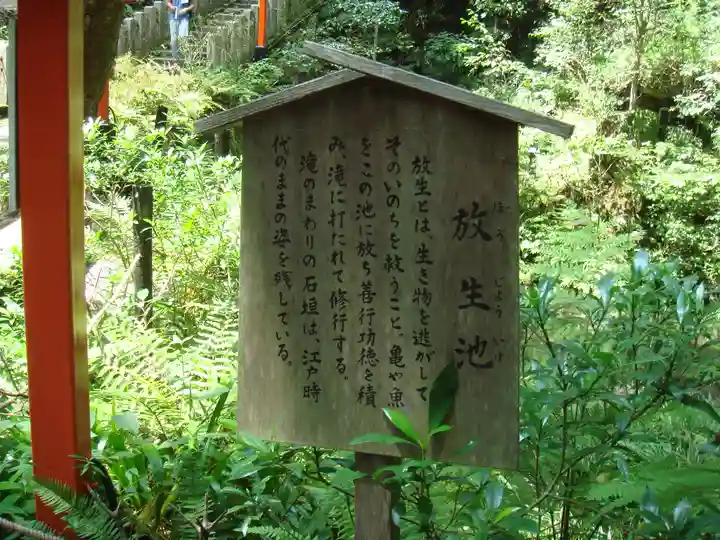 放生池
ほうじよういけ
放生とは、生き物を逃がして
そのいのちを救うこと、亀や魚
をこの池に放ち善行功徳を積
み、滝に打たれて修行する。
滝のまわりの石垣は、江戸時
代のままの姿を残している。